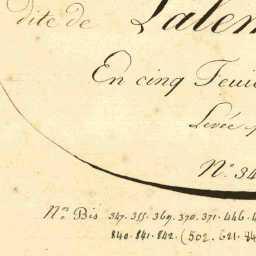 dite de Valen
En cinq Feui
Levée
N.º 34
N.os Bis 347. 355. 369. 370. 371. 446. 4
840. 841. 842. (502. 621. 84